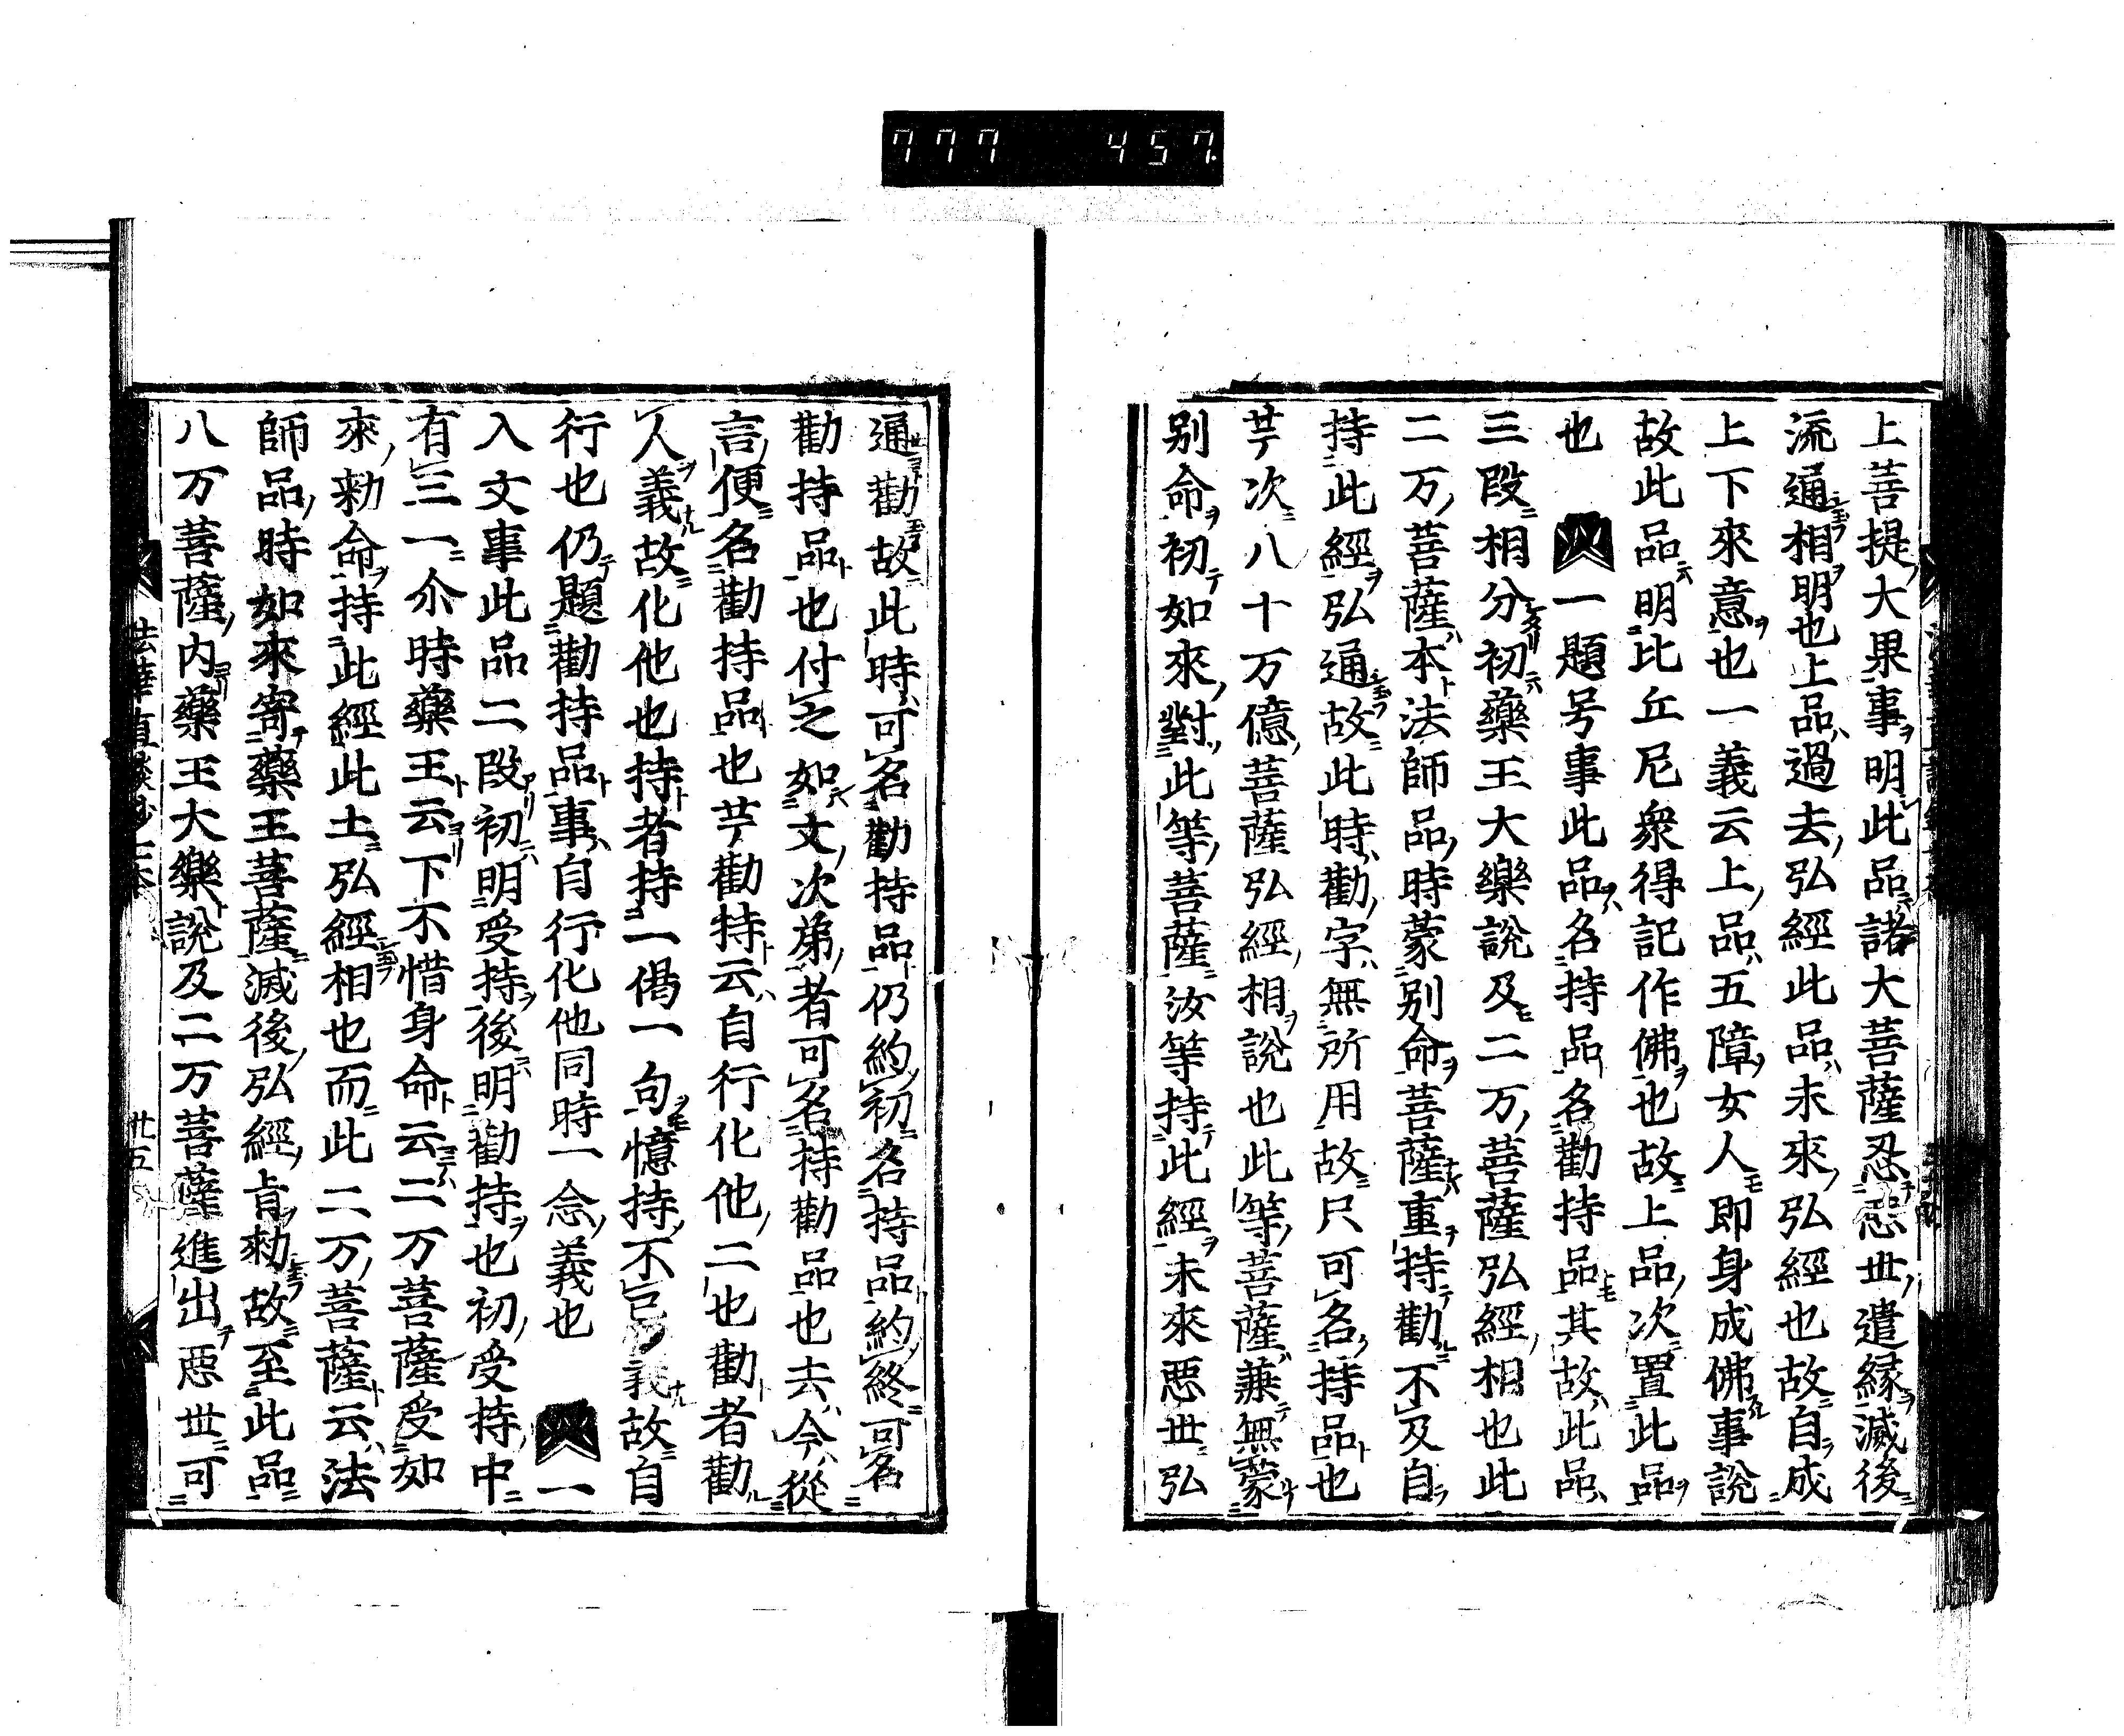 777 457
上菩提大果事明此品諸大菩薩忍惡世遣縁滅後
流通相明也上品過去弘經此品未來弘經也故自成
上下來意也一義云上品五障女人即身成佛事說
故此品明比丘尼衆得記作佛也故上品次置此品
也 一題号事此品名持品名勸持品其故此品
三段相分初藥王大樂說及二万菩薩弘經相也此
二万菩薩本法師品時蒙別命菩薩重持勸不及自
持此經弘通故此時勸字無所用故只可名持品也
䒭次八十万億菩薩弘經相說也此等菩薩兼無蒙
別命初如來對此等菩薩汝等持此經未來惡世弘
通勸故此時可名勸持品仍約初名持品約終可名
勸持品也付之如文次第者可名持勸品也去今從
言便名勸持品也䒭勸持云自行化他二也勸者勸
人義故化他也持者持一偈一句憶持不忘義故自
行也仍題勸持品事自行化他同時一念義也 一
入文事此品二段初明受持後明勸持也初受持中
有三一尒時藥王云下不惜身命云二万菩薩受如
來勅命持此經此土弘經相也而此二万菩薩云法
師品時如來寄藥王菩薩滅後弘經旨勅故至此品
八万菩薩内藥王大樂說及二万菩薩進出惡世可
法華直談鈔 六本 廿五